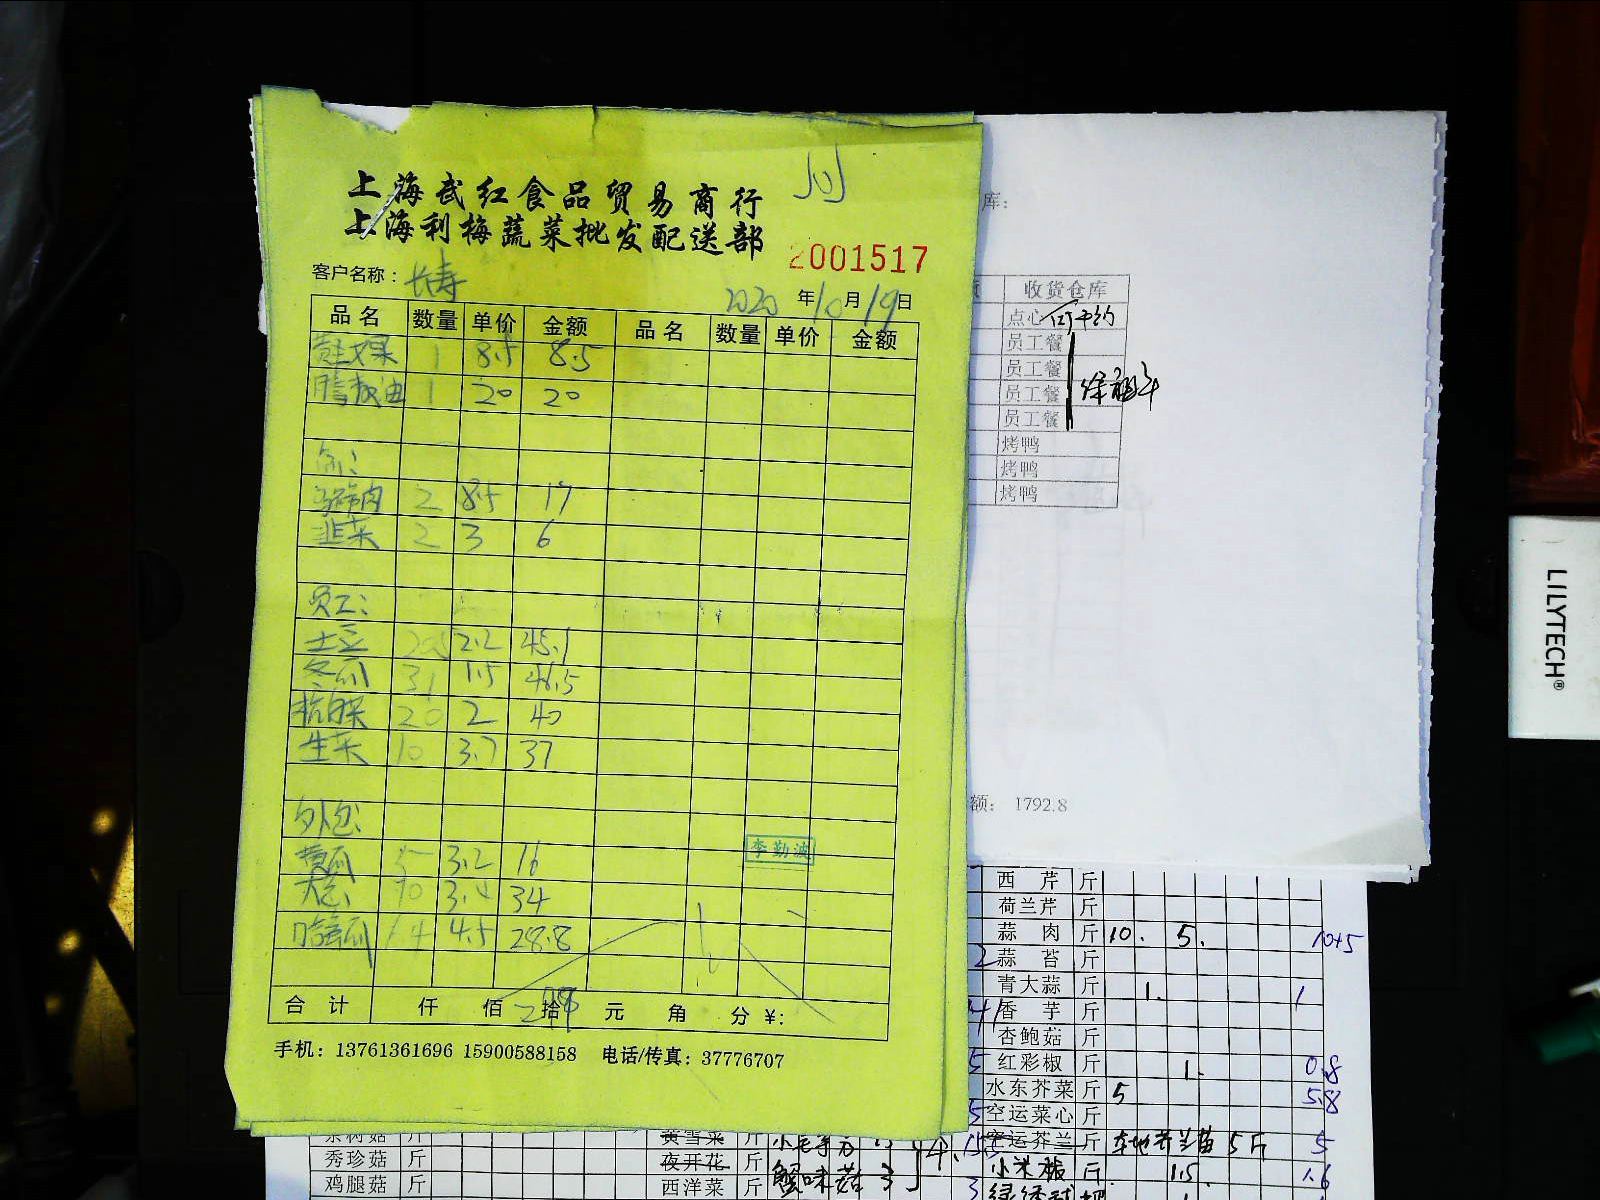 上海武红食品贸易商行
上海利梅蔬菜批发配送部
2001517
客户名称：长寿
2020年10月19日
品名 数量 单价 金额 品名 数量 单价 金额
1 8.5 8.5
1 20 20
2 8.5 17
韭菜 2 3 6
员工：
土豆 20.5 2.2 45.1
冬瓜 31 1.5 46.5
杭白菜 20 2 40
生菜 10 3.7 37
外包：
黄瓜 5 3.2 16
大葱 10 3.4 34
6.4 4.5 28.8
李勤波
合计 仟 佰 拾 元 角 分 ¥：
手机：13761361696 15900588158 电话/传真：37776707
库：
收货仓库
点心
员工餐
员工餐
员工餐
员工餐
烤鸭
烤鸭
烤鸭
额： 1792.8
LILYTECH®
西芹 斤
荷兰芹 斤
蒜肉 斤 10. 5. 10+5
2 蒜苔 斤
青大蒜 斤 1. 1
香芋 斤
杏鲍菇 斤
5 红彩椒 斤 1. 0.8
水东芥菜 斤 5 5.8
5 空运菜心 斤
茶树菇 斤 黄雪菜 斤 空运芥兰 斤 本地芥兰苗 5斤 5
秀珍菇 斤 夜开花 斤 蟹味菇 3 小米椒 斤 1.5. 1.6
鸡腿菇 斤 西洋菜 斤 3